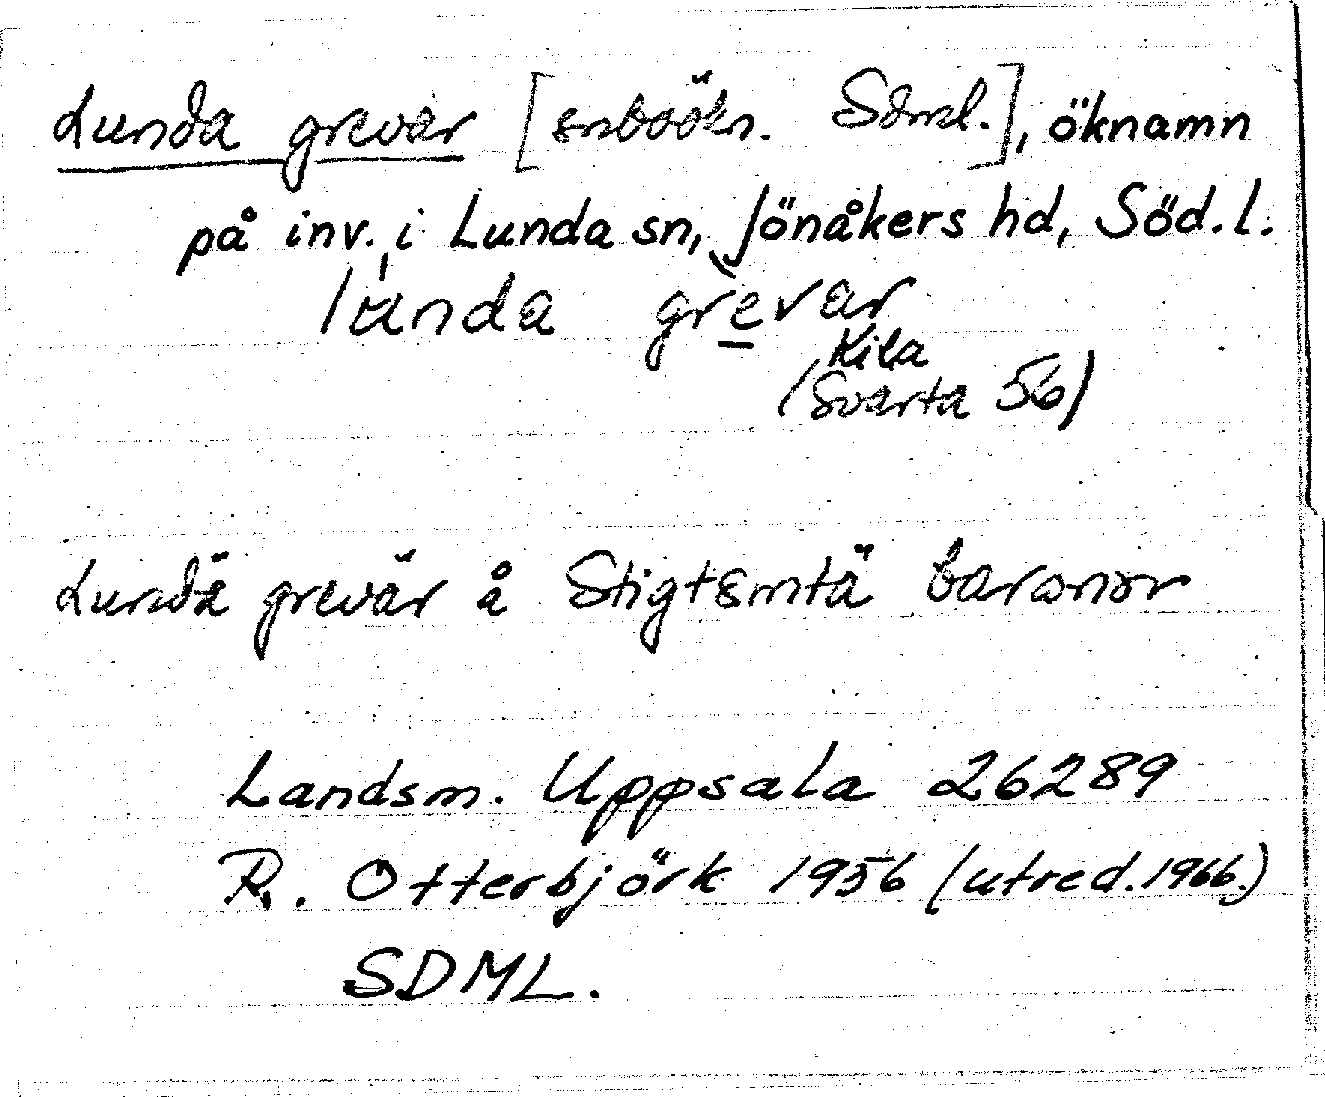 Lunda grevar [snboökn. Sdml.], öknamn
på inv. i Lunda sn, Jönåkers hd, Söd.l.
lunda grevar
Kila
(Svärta 56)
Lundä grevär å Stigtsmtä baranor
Landsm. Uppsala 26289
R. Otterbjörk 1956 (utred. 1966.)
SDML.